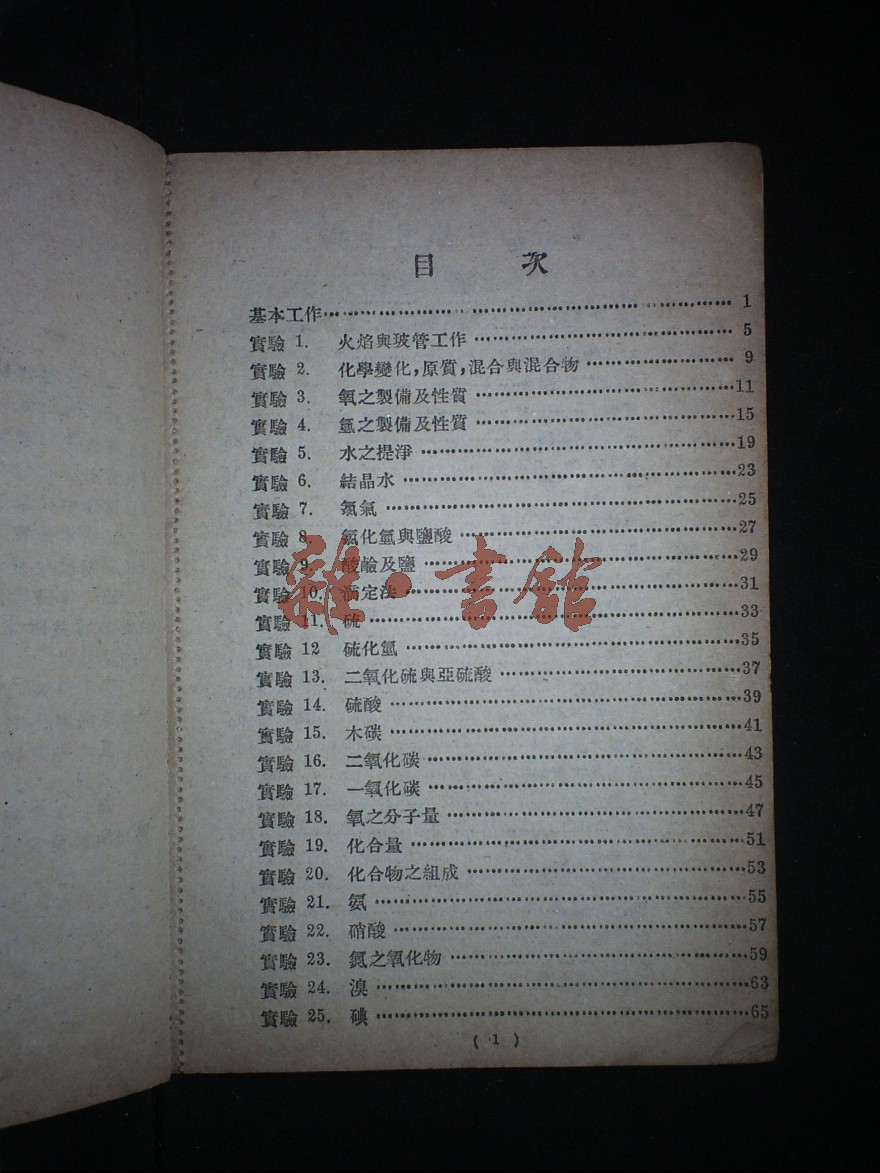 目 次
基本工作…………1
實驗 1. 火焰與玻管工作…………5
實驗 2. 化學變化，原質，混合與混合物…………9
實驗 3. 氧之製備及性質…………11
實驗 4. 氫之製備及性質…………15
實驗 5. 水之提淨…………19
實驗 6. 結晶水…………23
實驗 7. 氯氣…………25
實驗 8. 氯化氫與鹽酸…………27
實驗 9. 酸鹼及鹽…………29
實驗 10. 滴定法…………31
實驗 11. 硫…………33
實驗 12 硫化氫…………35
實驗 13. 二氧化硫與亞硫酸…………37
實驗 14. 硫酸…………39
實驗 15. 木碳…………41
實驗 16. 二氧化碳…………43
實驗 17. 一氧化碳…………45
實驗 18. 氧之分子量…………47
實驗 19. 化合量…………51
實驗 20. 化合物之組成…………53
實驗 21. 氨…………55
實驗 22. 硝酸…………57
實驗 23. 氮之氧化物…………59
實驗 24. 溴…………63
實驗 25. 碘…………65
( 1 )
雜·書館